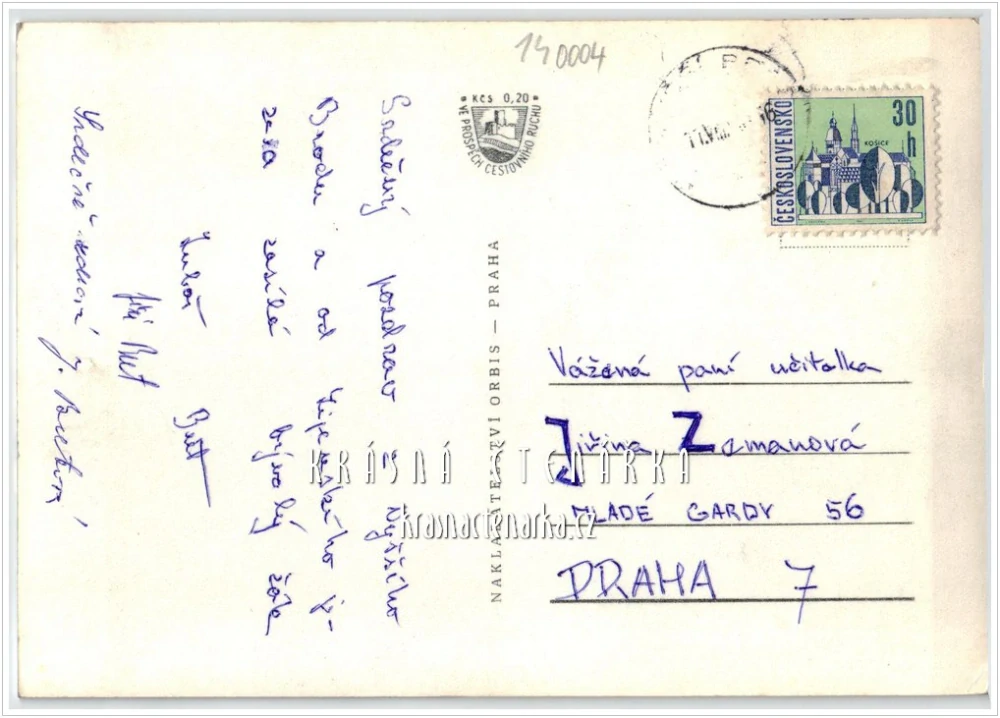 140004
* Kčs 0,20 *
VE PROSPĚCH CESTOVNÍHO RUCHU
ČESKOSLOVENSKO
30 h
KOŠICE
Srdečný pozdrav z Vyššího
Brodu a od Lipenského je-
zera zasílá bývalý žák
Luboš Butt
Jiří But
Srdečně zdraví J.
NAKLADATELSTVÍ ORBIS — PRAHA
Vážená paní učitelka
Jiřina Zemanová
MLADÉ GARDY 56
PRAHA 7
KRÁSNÁ ČTENÁŘKA
krasnactenarka.cz